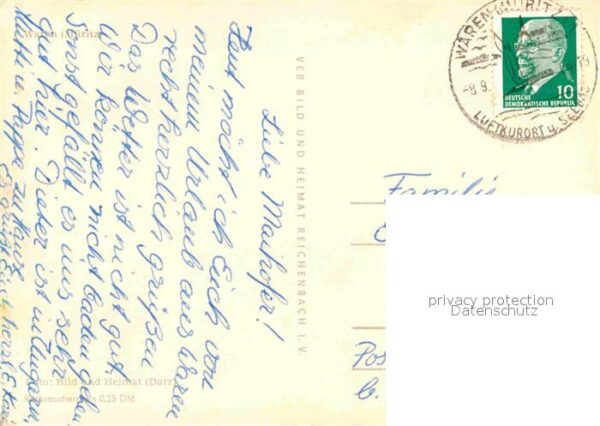 Waren (Müritz)
Liebe Maihofer!
Heut möcht ich Euch von
meinem Urlaub aus Waren
recht herzlich grüßen
Das Wetter ist nicht gut,
Wir können nicht baden gehen
Sonst gefällt es uns sehr
gut hier. Dieter ist in Ungarn,
Mutti u. Pappa zu Haus
Es grüßt Euch herzl. E.
Foto: Bild und Heimat (Darr)
Verbraucherpreis 0,25 DM
VEB BILD UND HEIMAT REICHENBACH I. V.
WAREN (MÜRITZ)
-8.9.
LUFTKURORT u.
10
DEUTSCHE
DEMOKRATISCHE REPUBLIK
Familie
privacy protection
Datenschutz